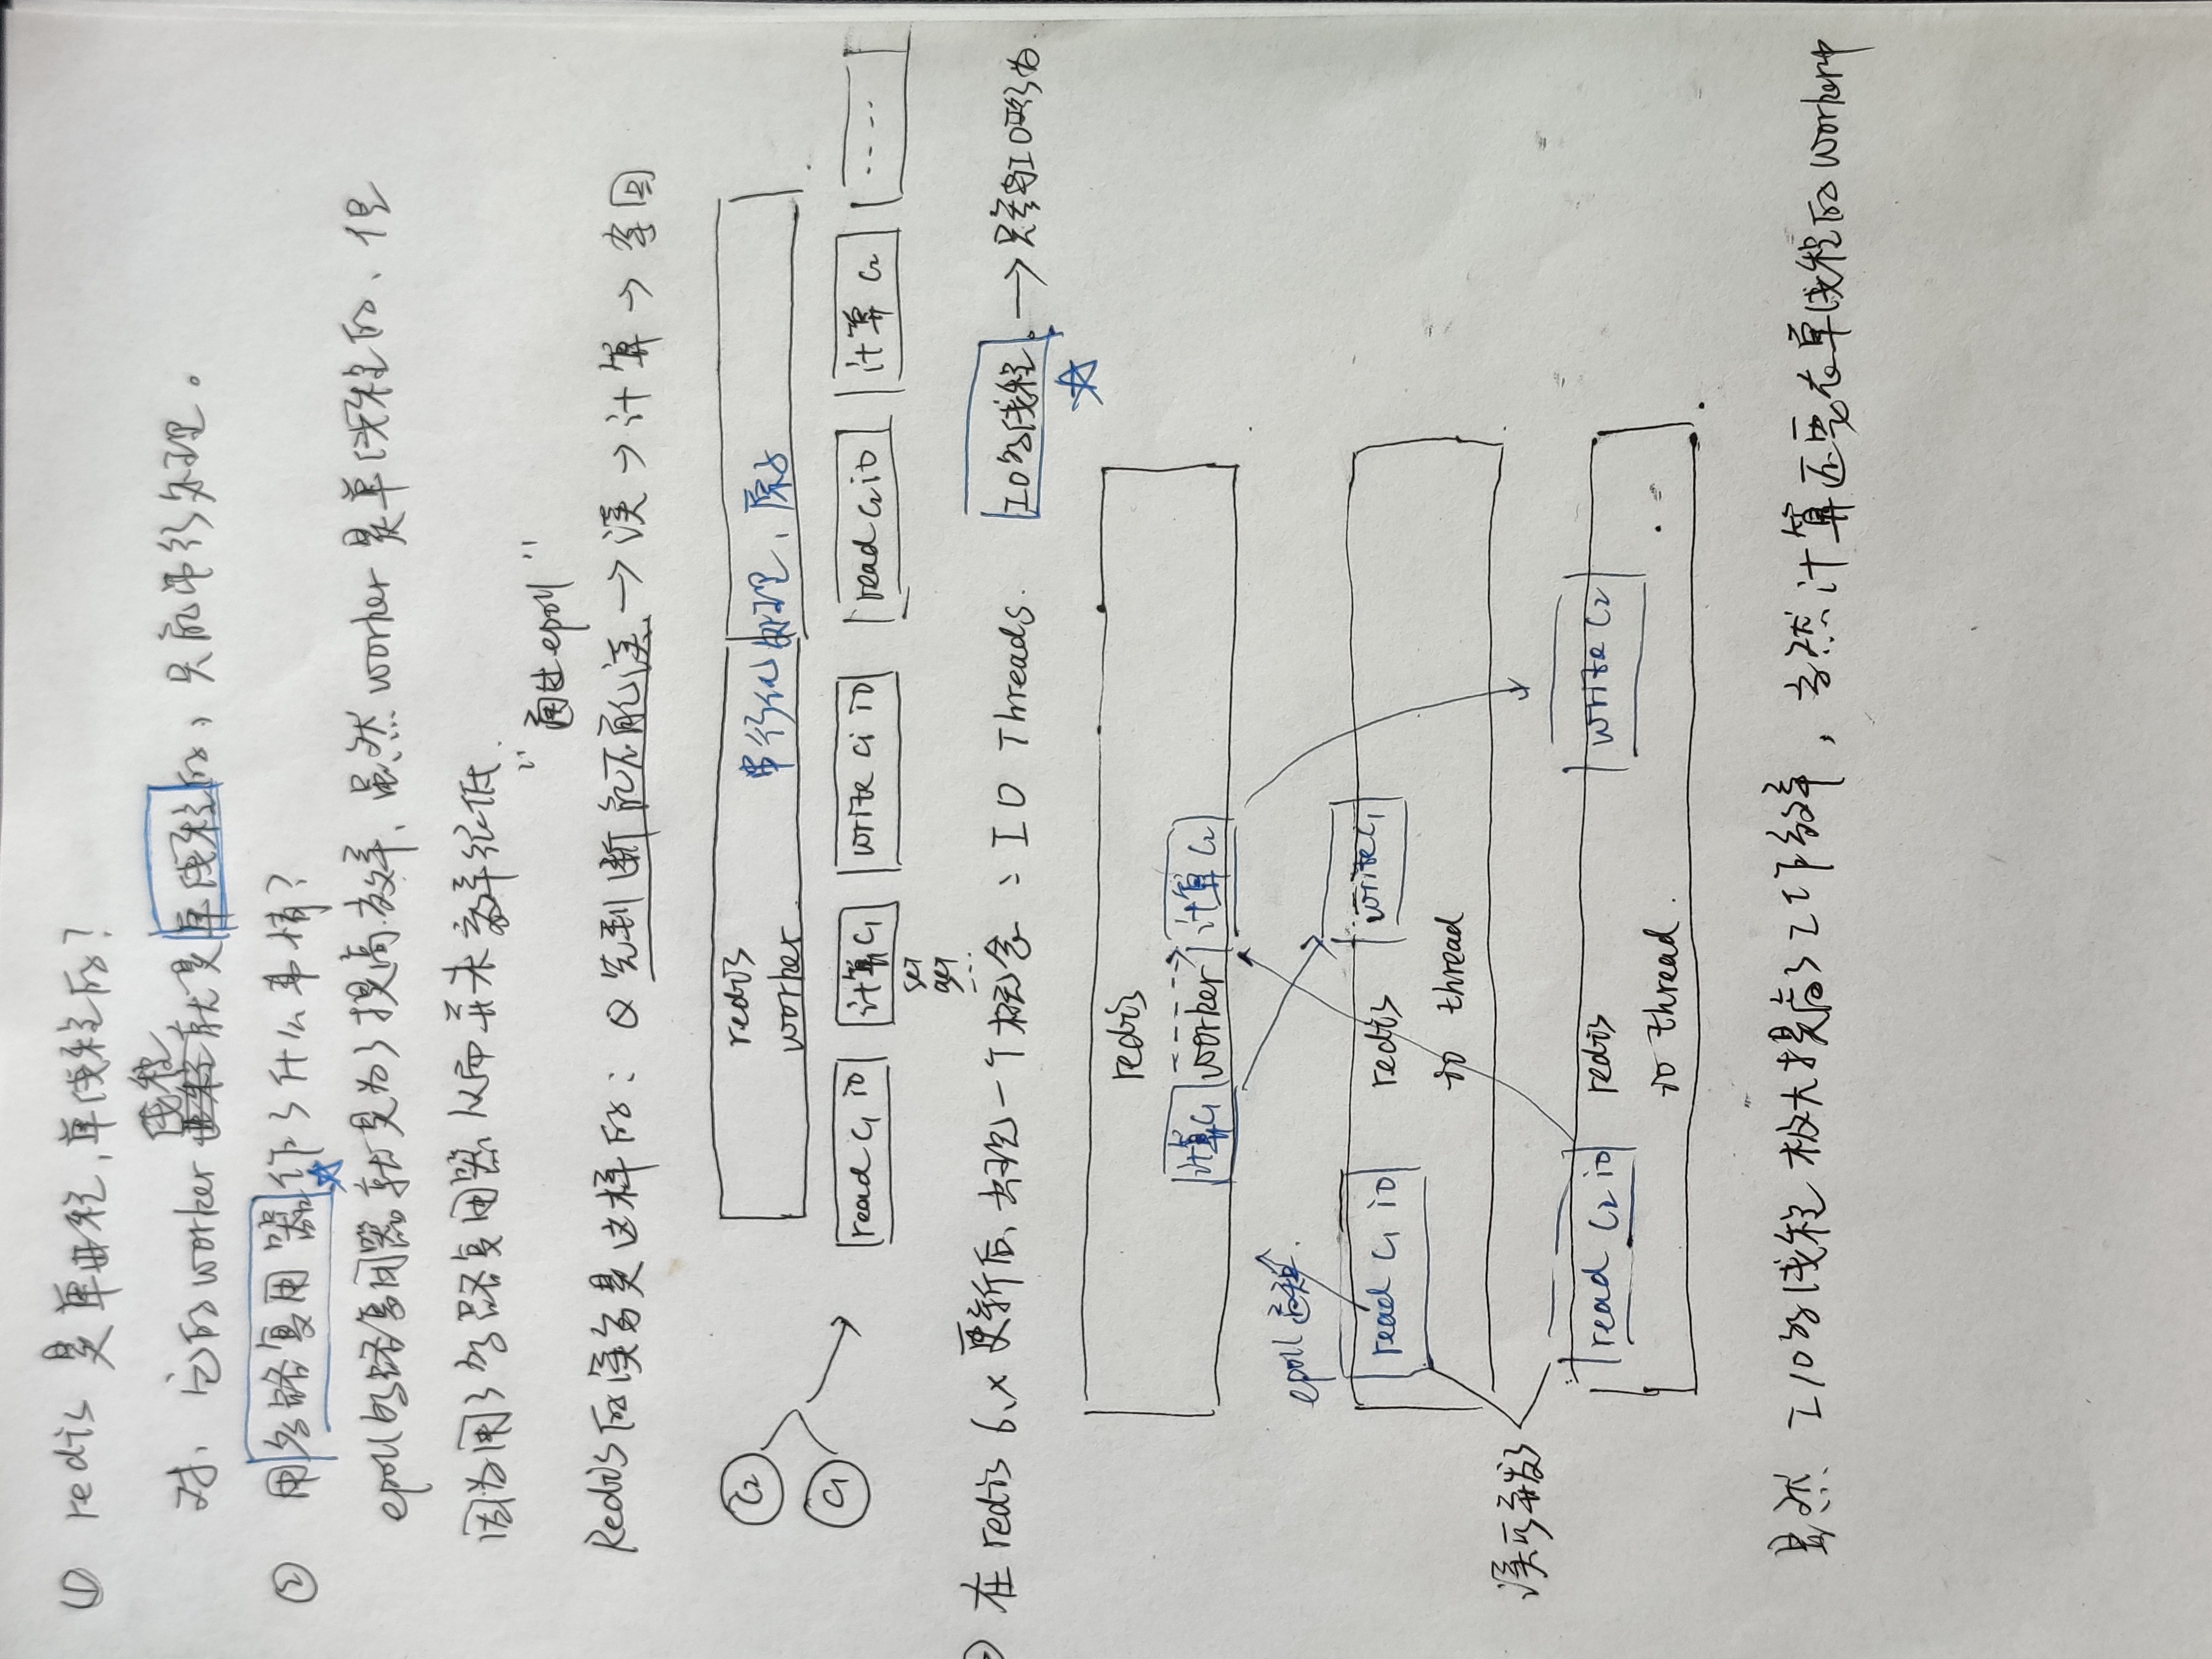 ① redis 是单进程,单线程的?
对、它的worker 线程就是单线程的,只能串行处理。
② 用多路复用器作了什么事情?
epoll多路复用器就是为了提高效率、虽然worker是单线程的、但
因为用了多路复用器从而并未效率很低.
"通过epoll"
Redis的读写是这样的: 先判断能不能读 → 读 → 计算 → 写回
C2
C1
redis
worker
串行化处理、原子
read C1 io 计算C1 write C1 io read C2 io 计算 C2 ....
set
get
...
在redis 6.x更新后、出现一个概念: IO Threads. IO多线程. → 只参与IO行为.
redis
计算C1 worker 计算 C2
epoll 通知.
read C1 io redis write C1
io thread
读可并发了
read C2 io redis write C2
io thread.
显然 I/O多线程极大提高了工作效率,当然计算还要在单线程的worker中